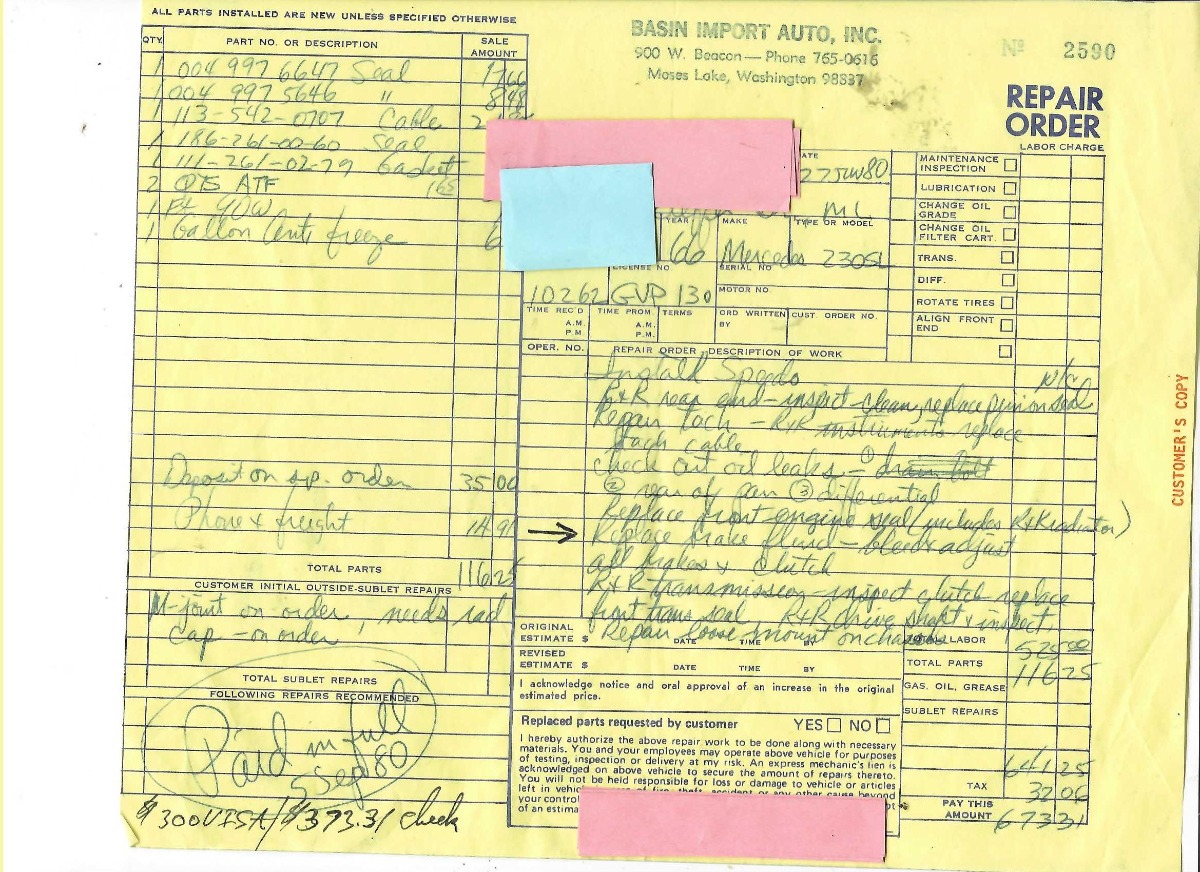 ALL PARTS INSTALLED ARE NEW UNLESS SPECIFIED OTHERWISE
QTY. PART NO. OR DESCRIPTION SALE AMOUNT
1 004 997 6647 Seal 17 66
1 004 997 5646 " 8 48
1 113-542-0707 Cable
1 186-261-00-60 Seal
1 111-261-02-79 Gasket
2 QTS ATF
1 Pt 90W
1 Gallon Anti freeze 6
Deposit on sp. order 35 00
Phone & freight 14 91
TOTAL PARTS 116.25
CUSTOMER INITIAL OUTSIDE-SUBLET REPAIRS
U-joint on order, needs rad
cap - on order
TOTAL SUBLET REPAIRS
FOLLOWING REPAIRS RECOMMENDED
Paid in full
5 Sep 80
$300 VISA/$373.31 check
BASIN IMPORT AUTO, INC.
900 W. Beacon — Phone 765-0616
Moses Lake, Washington 98837
Nº 2590
REPAIR
ORDER
LABOR CHARGE
ATE
YEAR MAKE TYPE OR MODEL
66 Mercedes 230SL
LICENSE NO. SERIAL NO
10262 GVP 130 MOTOR NO
TIME REC'D TIME PROM. TERMS ORD WRITTEN BY CUST. ORDER NO.
A.M. A.M.
P.M. P.M.
MAINTENANCE INSPECTION
LUBRICATION
CHANGE OIL GRADE
CHANGE OIL FILTER CART.
TRANS.
DIFF.
ROTATE TIRES
ALIGN FRONT END
OPER. NO. REPAIR ORDER, DESCRIPTION OF WORK
Install Speedo
R&R rear end - inspect - clean, replace pinion seal
Repair Tach - R&R instruments replace
tach cable
Check out oil leaks, - ① drain bolt
② rear of pan ③ differential
Replace front engine seal (includes R&R radiator)
→ Replace brake fluid - bleed & adjust
all brakes & clutch
R&R transmission - inspect clutch replace
front trans seal R&R drive shaft & inspect
Repair loose mount on chassis
ORIGINAL ESTIMATE $ DATE TIME BY
REVISED ESTIMATE $ DATE TIME BY
I acknowledge notice and oral approval of an increase in the original
estimated price.
Replaced parts requested by customer YES NO
I hereby authorize the above repair work to be done along with necessary
materials. You and your employees may operate above vehicle for purposes
of testing, inspection or delivery at my risk. An express mechanic's lien is
acknowledged on above vehicle to secure the amount of repairs thereto.
You will not be held responsible for loss or damage to vehicle or articles
left in vehicle of fire, theft, accident or any other cause beyond
your control
of an estima
TOTAL LABOR 525.00
TOTAL PARTS 116 25
GAS, OIL, GREASE
SUBLET REPAIRS
641.25
TAX 32.06
PAY THIS AMOUNT 673 31
CUSTOMER'S COPY